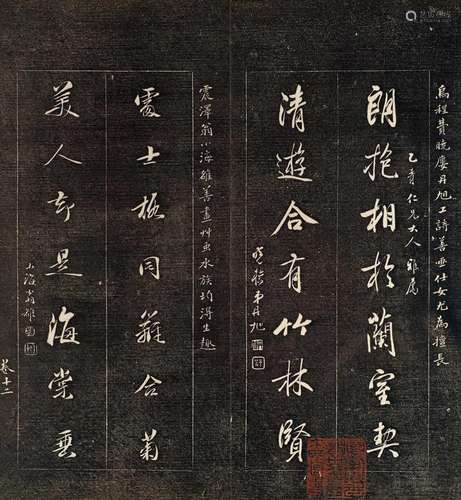 烏程費曉廔丹旭工詩善画仕女尤為擅長
乙青仁兄大人雅属
朗抱相於蘭室契
清遊合有竹林賢
曉樓弟丹旭
震澤翁小海雒善畫艸虫水族均得生趣
處士極同籬合菊
美人許是海棠垂
小海翁雒
卷十二